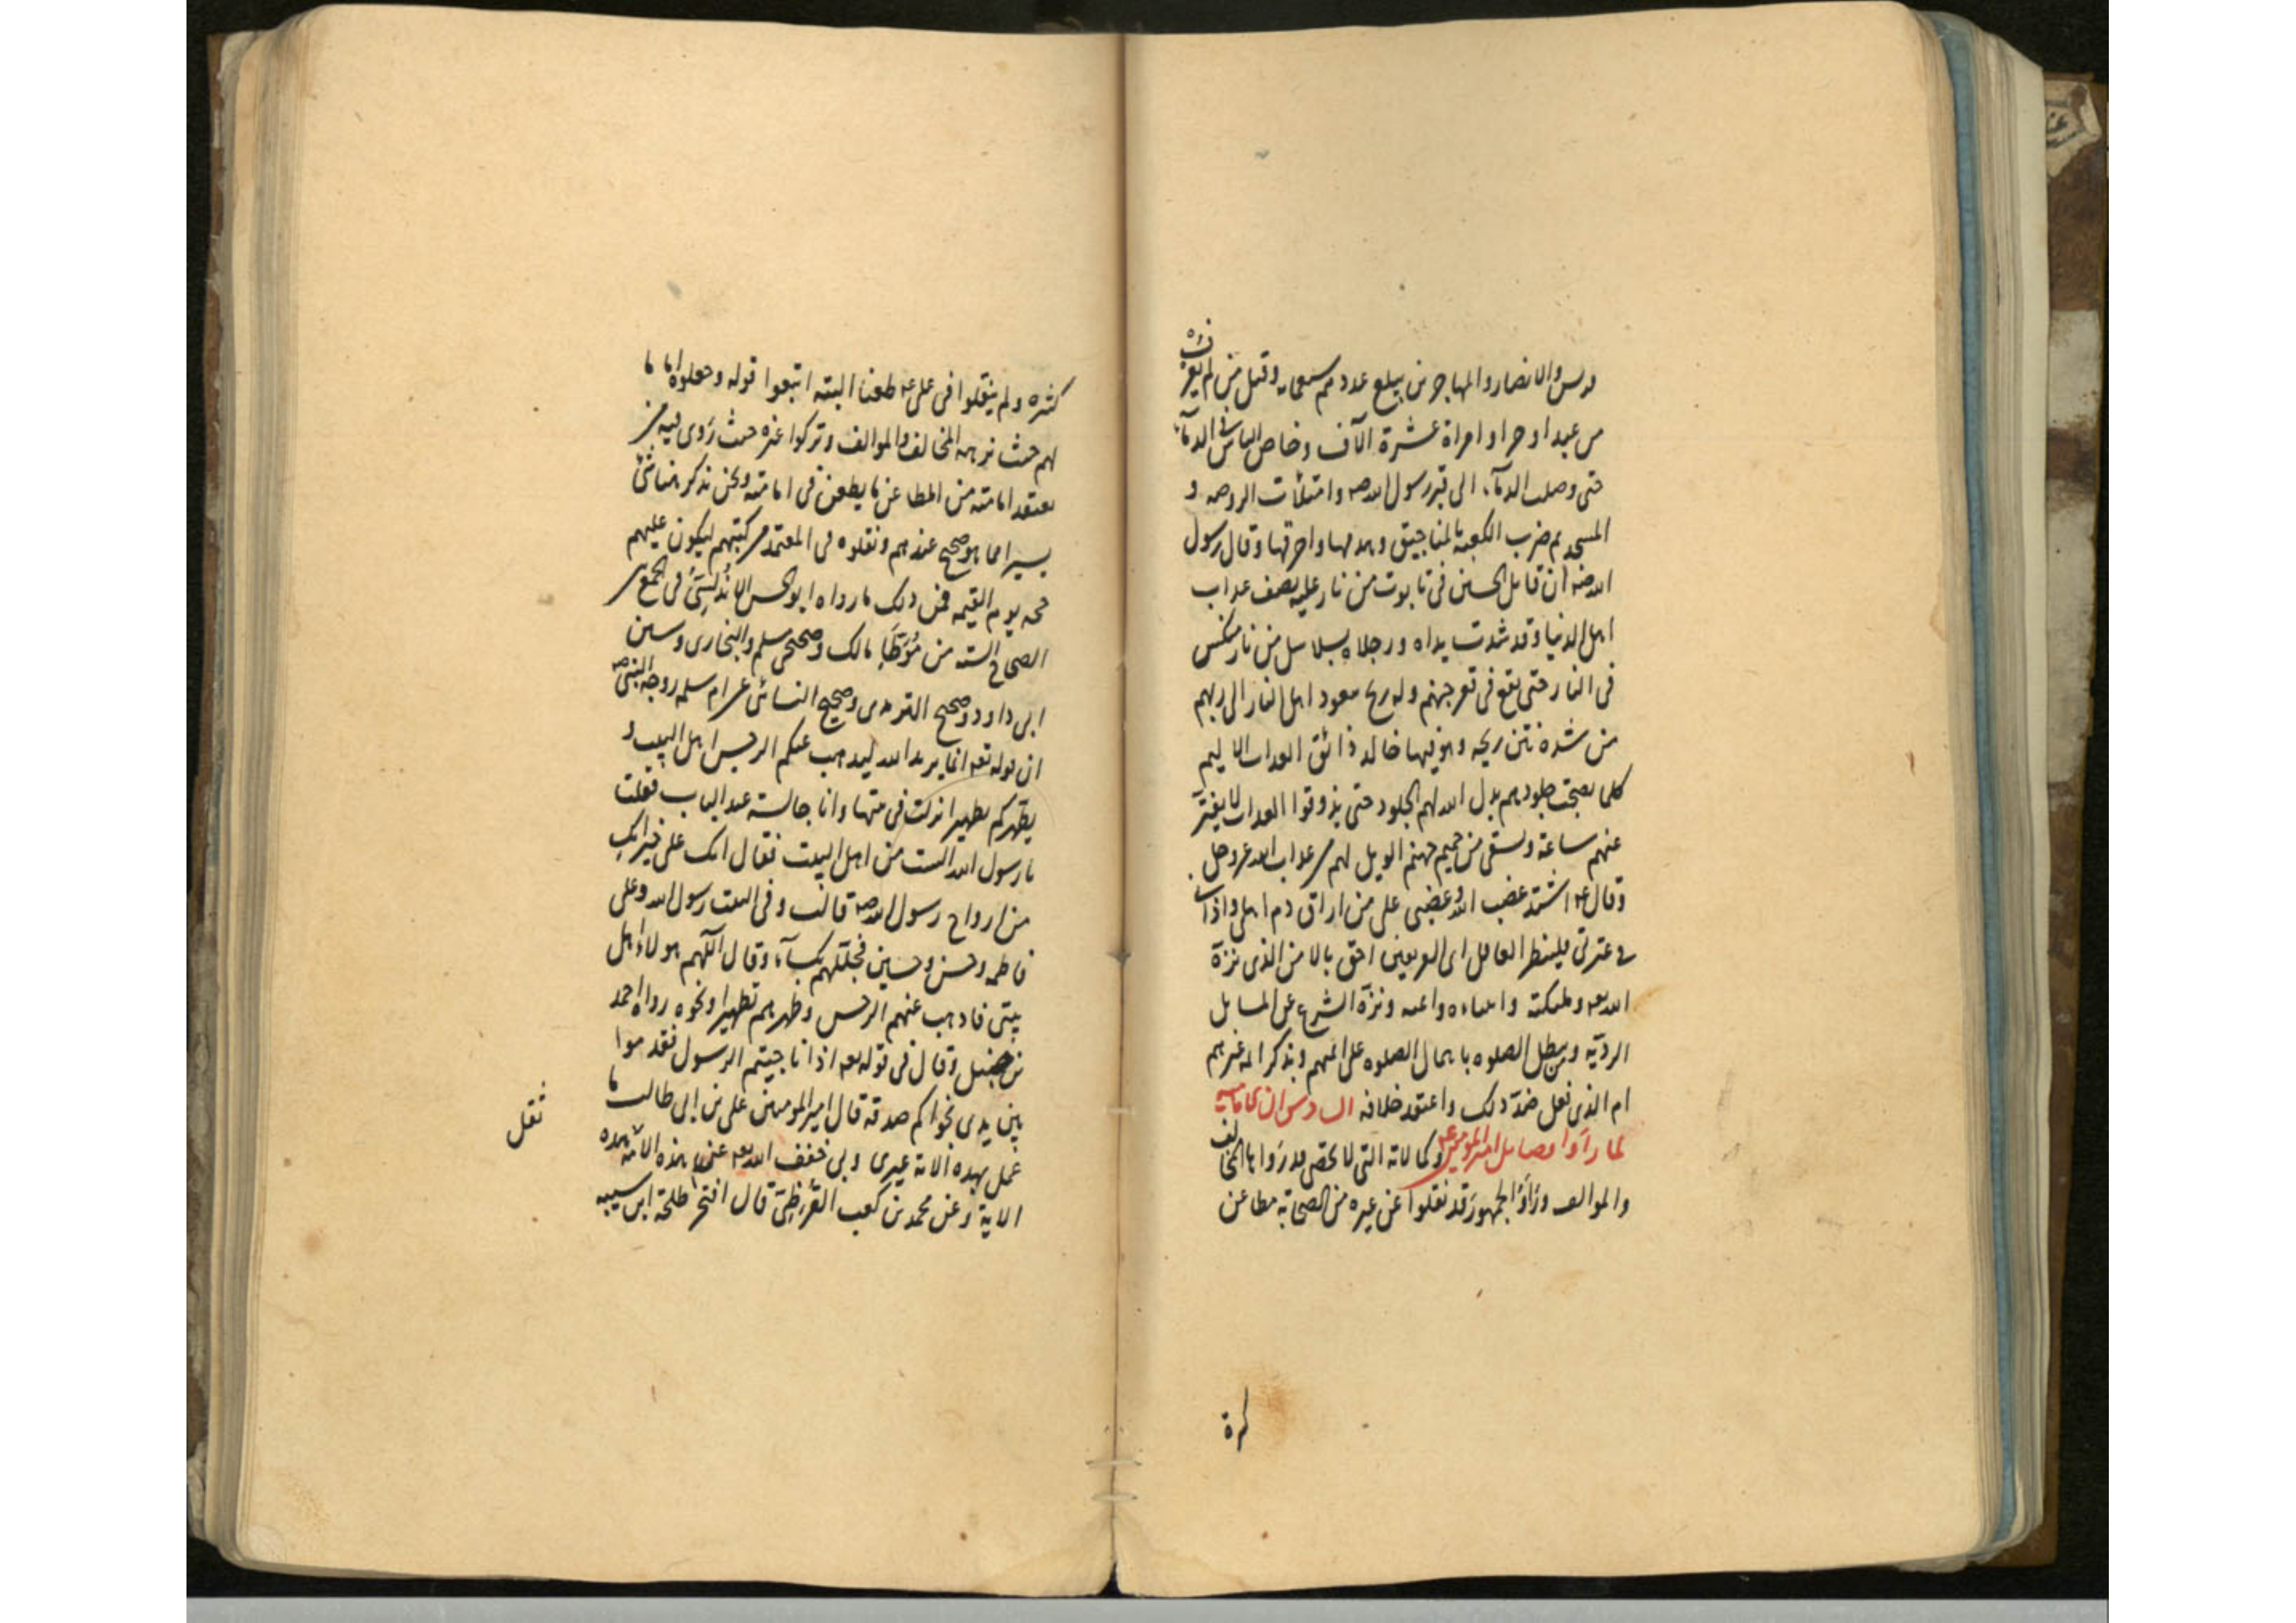 قريش والانصار والمهاجرين يبلغ عددهم سبعمايه وقتل من لم يعرف
من عبد او حر او امراة عشرة الآف وخاض الناس فى الدمآء
حتى وصلت الدمآء الى قبر رسول الله صه وامتلأت الروضه و
المسجد ثم ضرب الكعبة بالمناجيق وهدمها واحرقها وقال رسول
الله صه ان قاتل الحسين فى تابوت من نار عليه نصف عذاب
اهل الدنيا وقد شدت يداه ورجلاه بسلاسل من نار منكس
فى النار حتى يقع فى قعر جهنم وله ريح يتعوذ اهل النار الى ربهم
من شدة نتن ريحه وهو فيها خالد ذائق العذاب الاليم
كلما نضجت جلودهم بدل الله لهم الجلود حتى يذوقوا العذاب لا يفتر
عنهم ساعة ويسقى من حميم جهنم الويل لهم من عذاب الله عز وجل
وقال عه اشتد غضب الله وغضبى على من اراق دم اهلى واذانى
فى عترتى فلينظر العاقل اى الفريقين احق بالامن الذى نزه
الله تعه وملئكته وانبياءه وائمته ونزه الشرع عن المسايل
الرديه ويبطل الصلوه باهمال الصلوه على ائمتهم ويذكر ائمه غيرهم
ام الذى فعل ضد ذلك واعتقد خلافه السادس ان الاماميه
لما راوا فضايل امير المومنين عه وكمالاته التى لا تحصى قد رواها المخالف
والموالف وراوا الجمهور قد نقلوا عن غيره من الصحابة مطاعن
كثره
كثره ولم ينقلوا فى على عه طعنا البته اتبعوا قوله وجعلوه اماما
لهم حيث نزهه المخالف والموالف وتركوا غيره حيث روى فيه من
يعتقد امامته من المطاعن ما يطعن فى امامته ونحن نذكر هنا شيئا
يسيرا مما هو صحيح عندهم ونقلوه فى المعتمد من كتبهم ليكون عليهم
حجه يوم القيمه فمن ذلك ما رواه ابو الحسن الاندلسى فى الجمع بين
الصحاح السته من موطا مالك وصحيحى مسلم والبخارى وسنن
ابى داود وصحيح الترمذى وصحيح النسائى عن ام سلمه زوجه النبى صه
ان قوله تعه انما يريد الله ليذهب عنكم الرجس اهل البيت و
يطهركم تطهيرا انزلت فى بيتها وانا جالسه عند الباب فقلت
يا رسول الله الست من اهل البيت فقال انك على خير انك
من ازواج رسول الله صه قالت وفى البيت رسول الله وعلى
فاطمه وحسن وحسين فجللهم بكسآء وقال اللهم هولاء اهل
بيتى فاذهب عنهم الرجس وطهرهم تطهيرا ونحوه رواه احمد
بن حنبل وقال فى قوله تعه اذا ناجيتم الرسول فقدموا
بين يدى نجواكم صدقه قال امير المومنين على بن ابى طالب ما
عمل بهذه الاية غيرى وبى خفف الله تعه عن هذه الامة هذه
الاية وعن محمد بن كعب القرظى قال افتخر طلحة ابن شيبه
ثقل